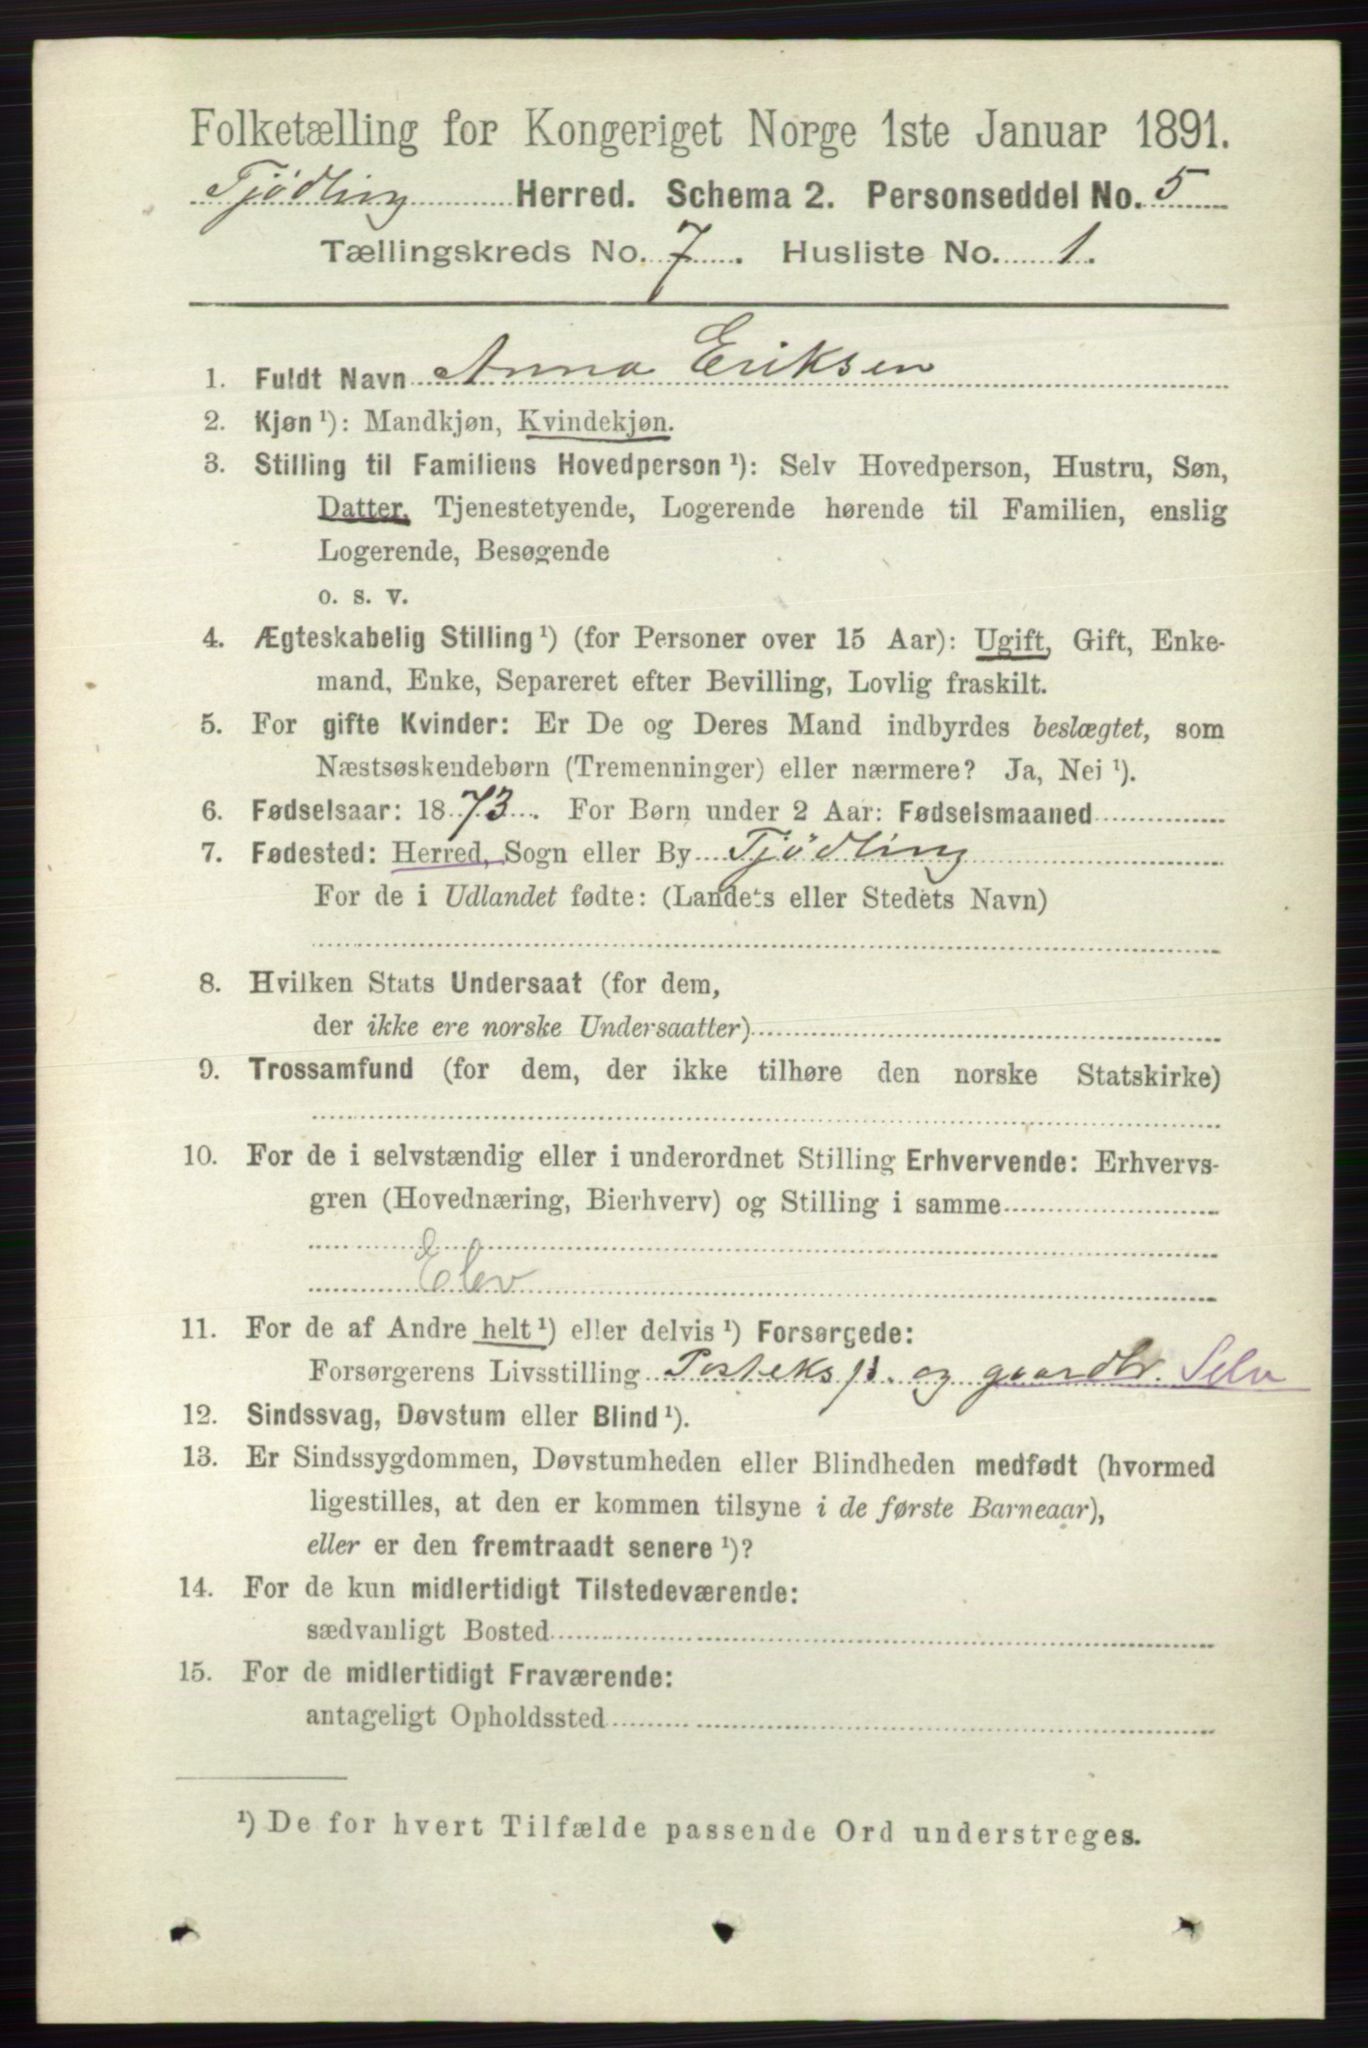 Folketælling for Kongeriget Norge 1ste Januar 1891.
Tjödling Herred. Schema 2. Personseddel No. 5
Tællingskreds No. 7. Husliste No. 1.
1. Fuldt Navn Anna Eriksen
2. Kjøn ¹): Mandkjøn, Kvindekjøn.
3. Stilling til Familiens Hovedperson ¹): Selv Hovedperson, Hustru, Søn,
Datter, Tjenestetyende, Logerende hørende til Familien, enslig
Logerende, Besøgende
o. s. v.
4. Ægteskabelig Stilling ¹) (for Personer over 15 Aar): Ugift, Gift, Enke-
mand, Enke, Separeret efter Bevilling, Lovlig fraskilt.
5. For gifte Kvinder: Er De og Deres Mand indbyrdes beslægtet, som
Næstsøskendebørn (Tremenninger) eller nærmere? Ja, Nei ¹).
6. Fødselsaar: 1873. For Børn under 2 Aar: Fødselsmaaned
7. Fødested: Herred, Sogn eller By Tjödling
For de i Udlandet fødte: (Landets eller Stedets Navn)
8. Hvilken Stats Undersaat (for dem,
der ikke ere norske Undersaatter)
9. Trossamfund (for dem, der ikke tilhøre den norske Statskirke)
10. For de i selvstændig eller i underordnet Stilling Erhvervende: Erhvervs-
gren (Hovednæring, Bierhverv) og Stilling i samme
Elev
11. For de af Andre helt ¹) eller delvis ¹) Forsørgede:
Forsørgerens Livsstilling Posteksp. og gaardbr. Selv
12. Sindssvag, Døvstum eller Blind ¹).
13. Er Sindssygdommen, Døvstumheden eller Blindheden medfødt (hvormed
ligestilles, at den er kommen tilsyne i de første Barneaar),
eller er den fremtraadt senere ¹)?
14. For de kun midlertidigt Tilstedeværende:
sædvanligt Bosted
15. For de midlertidigt Fraværende:
antageligt Opholdssted
¹) De for hvert Tilfælde passende Ord understreges.